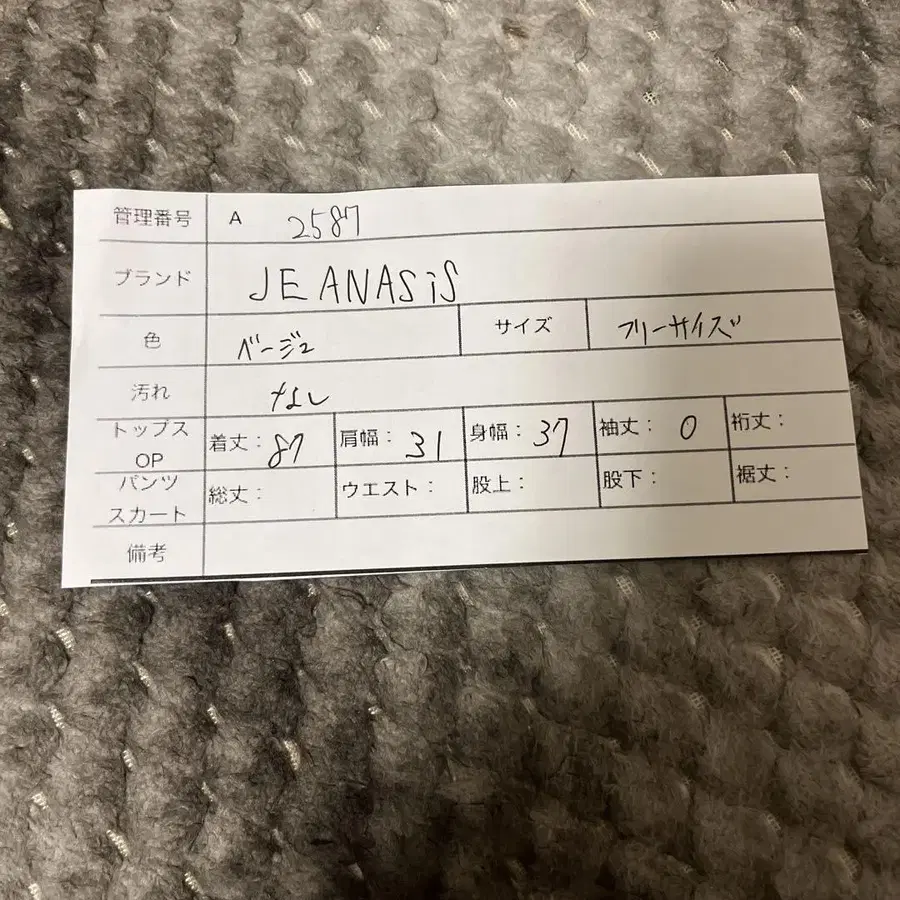 管理番号 A 2587
ブランド JEANASiS
色 ベージュ サイズ フリーサイズ
汚れ なし
トップス OP 着丈: 87 肩幅: 31 身幅: 37 袖丈: 0 裄丈:
パンツ スカート 総丈: ウエスト: 股上: 股下: 裾丈:
備考